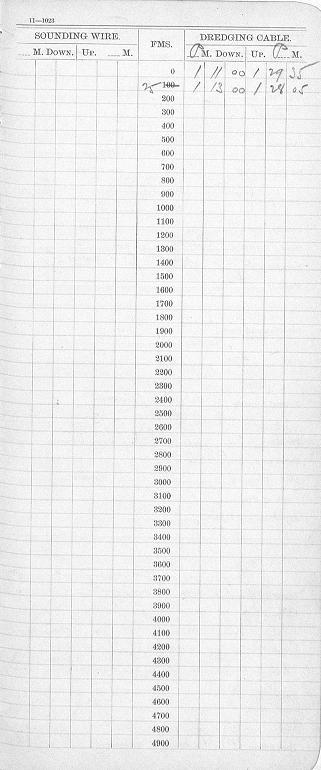 11—1023
SOUNDING WIRE. FMS. DREDGING CABLE.
M. DOWN. UP. M. P M. DOWN. UP. P M.
0 1 11 00 1 29 35
25 100 1 13 00 1 28 05
200
300
400
500
600
700
800
900
1000
1100
1200
1300
1400
1500
1600
1700
1800
1900
2000
2100
2200
2300
2400
2500
2600
2700
2800
2900
3000
3100
3200
3300
3400
3500
3600
3700
3800
3900
4000
4100
4200
4300
4400
4500
4600
4700
4800
4900